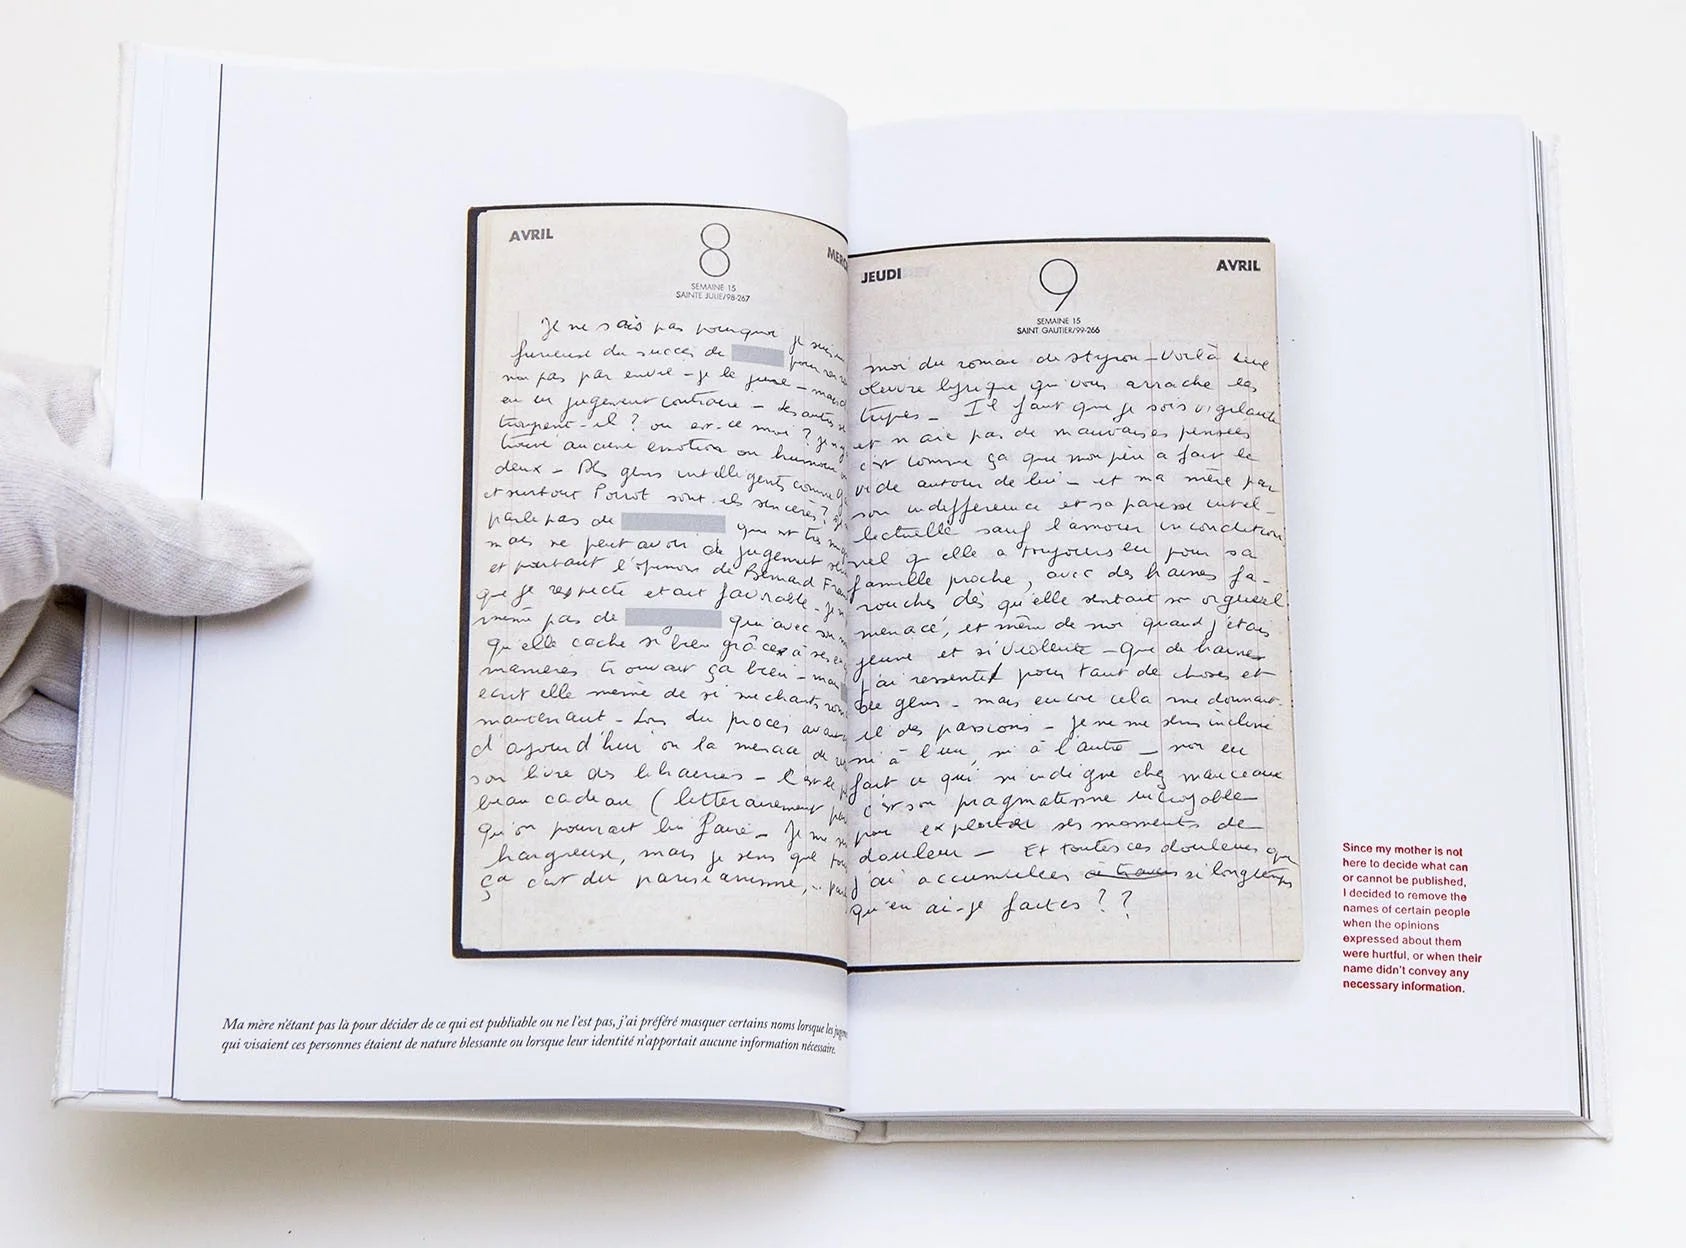 AVRIL
8
SEMAINE 15
SAINTE JULIE/98-267
Je ne sais pas pourquoi je suis
furieuse du succès de pour
non pas par envie - je le jure - mais
en un jugement contraire - les autres se
trompent-il ? ou est-ce moi ? je n'y
trouve aucune émotion ou humour
deux - Des gens intelligents comme
et surtout Poirot sont-ils sincères ? je
parle pas de qui est très
mais ne peut avoir de jugement
et pourtant l'opinion de Bernard Frank
que je respecte était favorable - je
même pas de qui avec son
qu'elle cache si bien grâce à ses
manières trouvait ça bien - mais
écrit elle même de si méchants
maintenant - Lors du procès
d'aujourd'hui on la menace de
son livre des librairies - C'est le
beau cadeau (littérairement
qu'on pourrait lui faire - Je me
hargneuse, mais je sens que
ça c'est du parisianisme,
JEUDI
AVRIL
9
SEMAINE 15
SAINT GAUTIER/99-266
moi du roman de Styron - Voilà une
oeuvre lyrique qui vous arrache les
tripes - Il faut que je sois vigilante
et n'aie pas de mauvaises pensées
c'est comme ça que mon père a fait le
vide autour de lui - et ma mère par
son indifférence et sa paresse intel-
lectuelle sauf l'amour incondition
nel qu'elle a toujours eu pour sa
famille proche, avec des haines fa-
rouches dès qu'elle sentait son orgueil
menacé, et même de moi quand j'étais
jeune et si violente - Que de haines
j'ai ressenties pour tant de choses et
de gens - mais encore cela me donnait-
il des passions - Je ne me sens incliné
ni à l'un, ni à l'autre - non en
fait ce qui m'indigne chez
c'est son pragmatisme incroyable
pour exploiter ses moments de
douleur - Et toutes ces douleurs que
j'ai accumulées à travers si longtemps
qu'en ai-je faites ??
Since my mother is not
here to decide what can
or cannot be published,
I decided to remove the
names of certain people
when the opinions
expressed about them
were hurtful, or when their
name didn't convey any
necessary information.
Ma mère n'étant pas là pour décider de ce qui est publiable ou ne l'est pas, j'ai préféré masquer certains noms lorsque les
qui visaient ces personnes étaient de nature blessante ou lorsque leur identité n'apportait aucune information nécessaire.